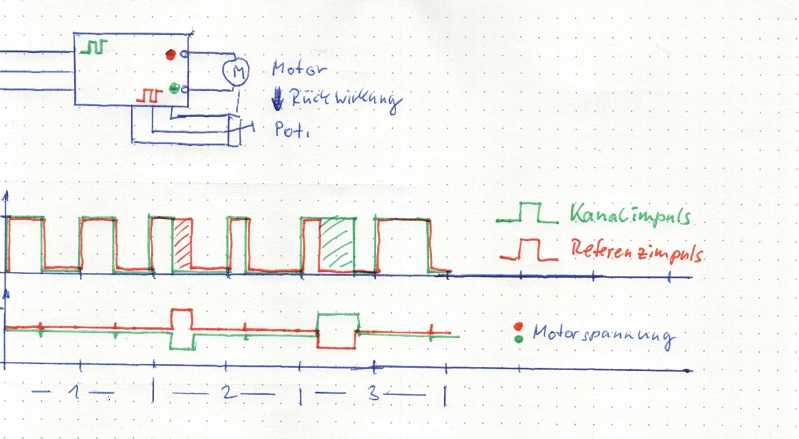 M Motor
Rückwirkung
Poti
Kanalimpuls
Referenzimpuls
Motorspannung
— 1 — | — 2 — | — 3 — |